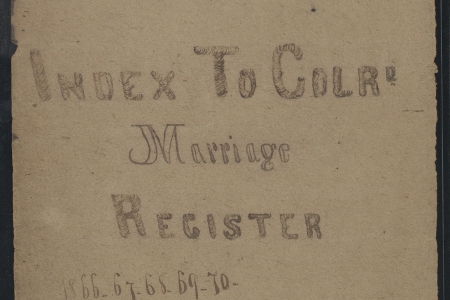 INDEX TO COLRD
Marriage
REGISTER
1866-67-68-69-70-